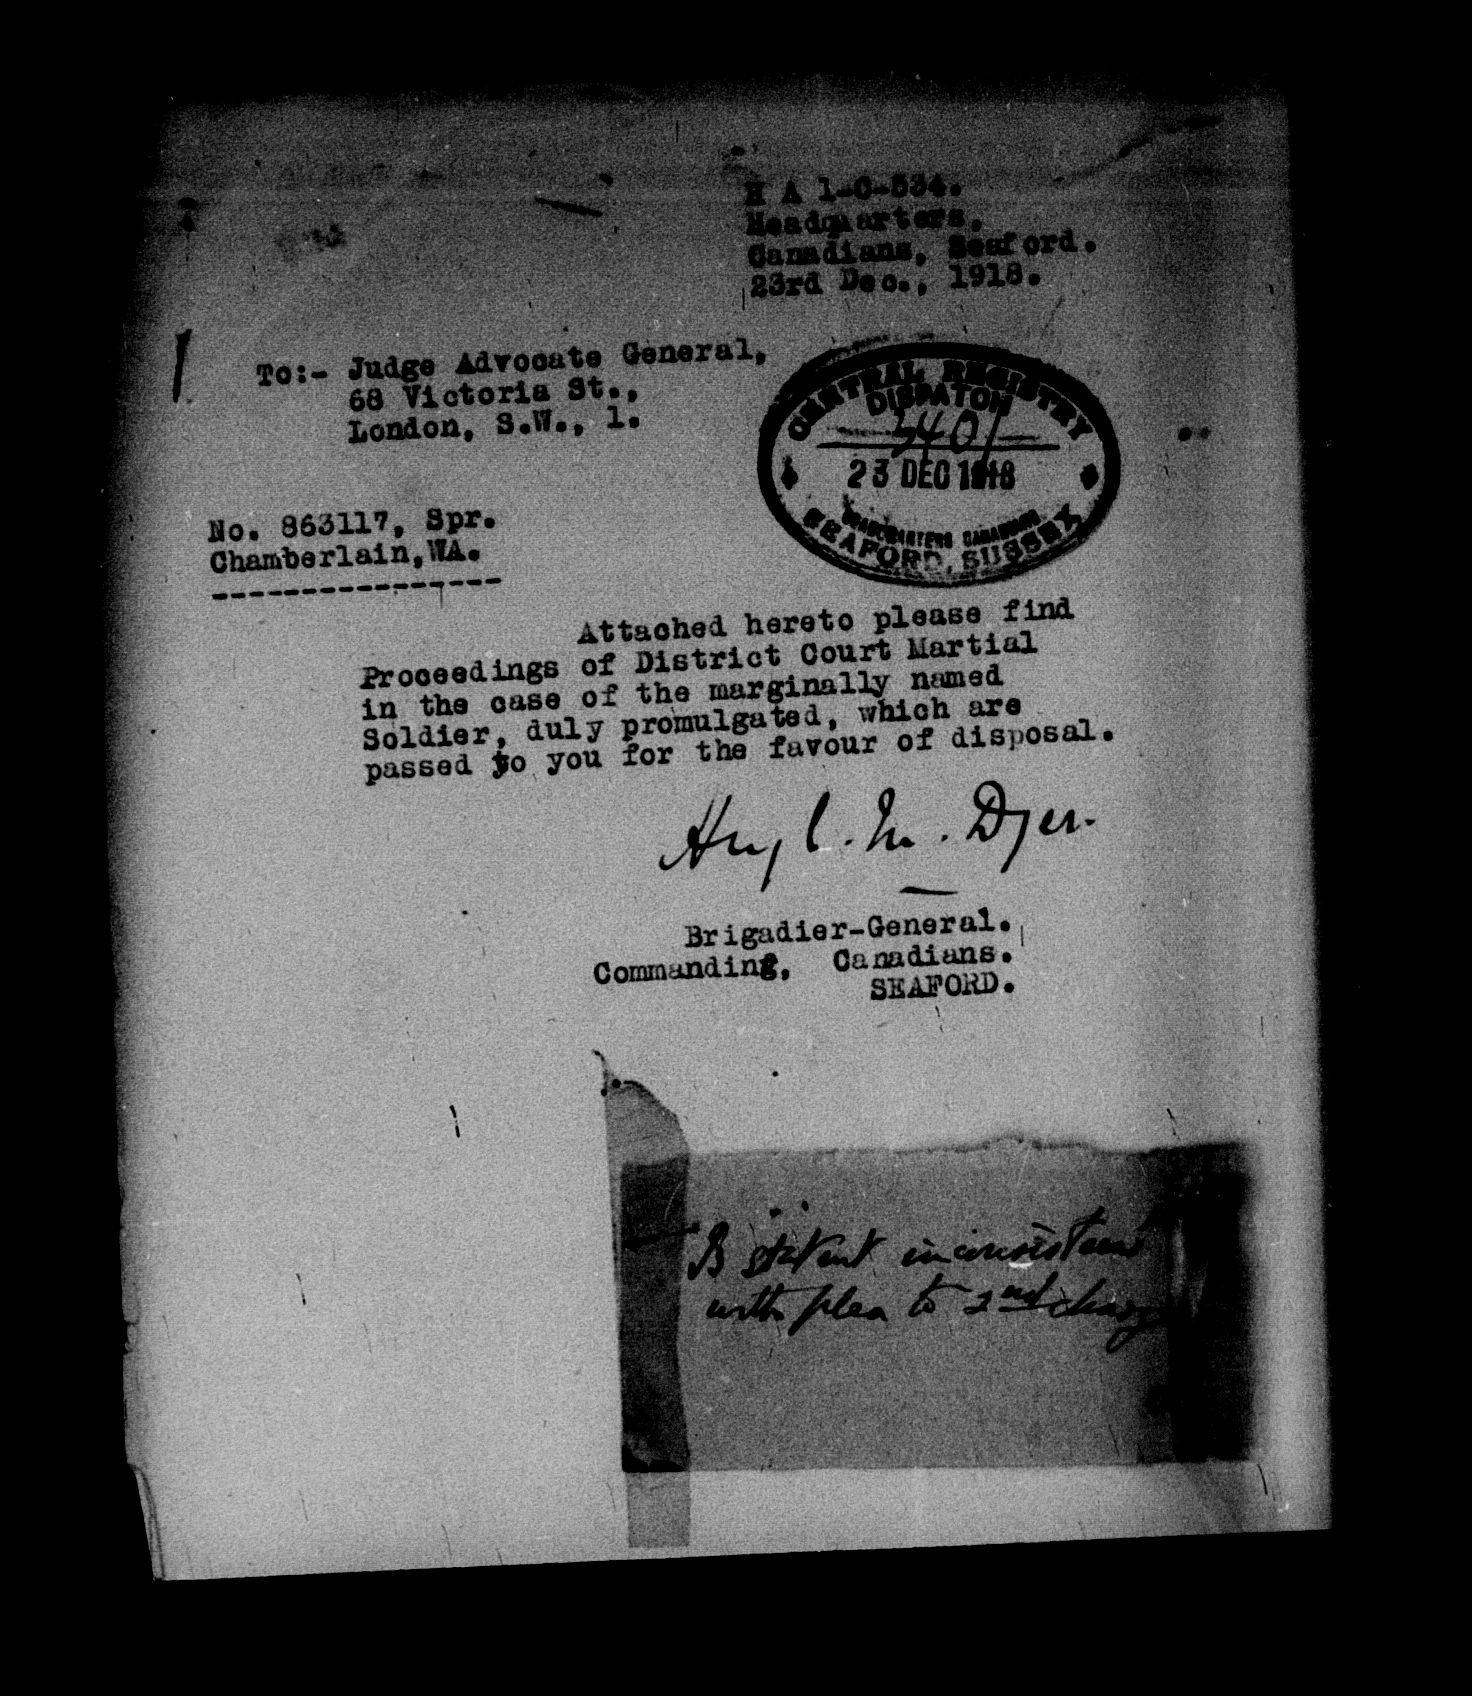 H A 1-C-534.
Headquarters,
Canadians, Seaford.
23rd Dec., 1918.
To:- Judge Advocate General,
68 Victoria St.,
London, S.W., 1.
CENTRAL REGISTRY
DISPATCH
5401
23 DEC 1918
HEADQUARTERS CANADIANS
SEAFORD, SUSSEX
No. 863117, Spr.
Chamberlain,WA.
Attached hereto please find
Proceedings of District Court Martial
in the case of the marginally named
Soldier, duly promulgated, which are
passed to you for the favour of disposal.
Hug C. M. Dyer.
Brigadier-General.
Commanding, Canadians.
SEAFORD.
Is statent inconsistent
with plea to 2nd charge